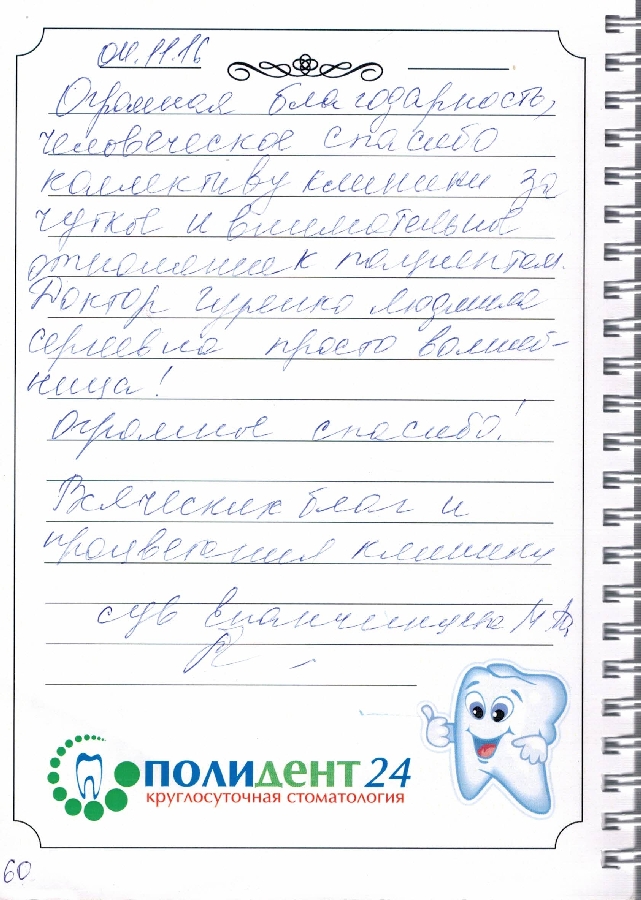 04.11.16
Огромная благодарность,
человеческое спасибо
коллективу клиники за
чуткое и внимательное
отношение к пациентам.
Доктор Гуренко Людмила
Сергеевна просто волшеб-
ница!
Огромное спасибо!
Всяческих благ и
процветания клинике
с ув
ПОЛИДЕНТ 24
круглосуточная стоматология
60